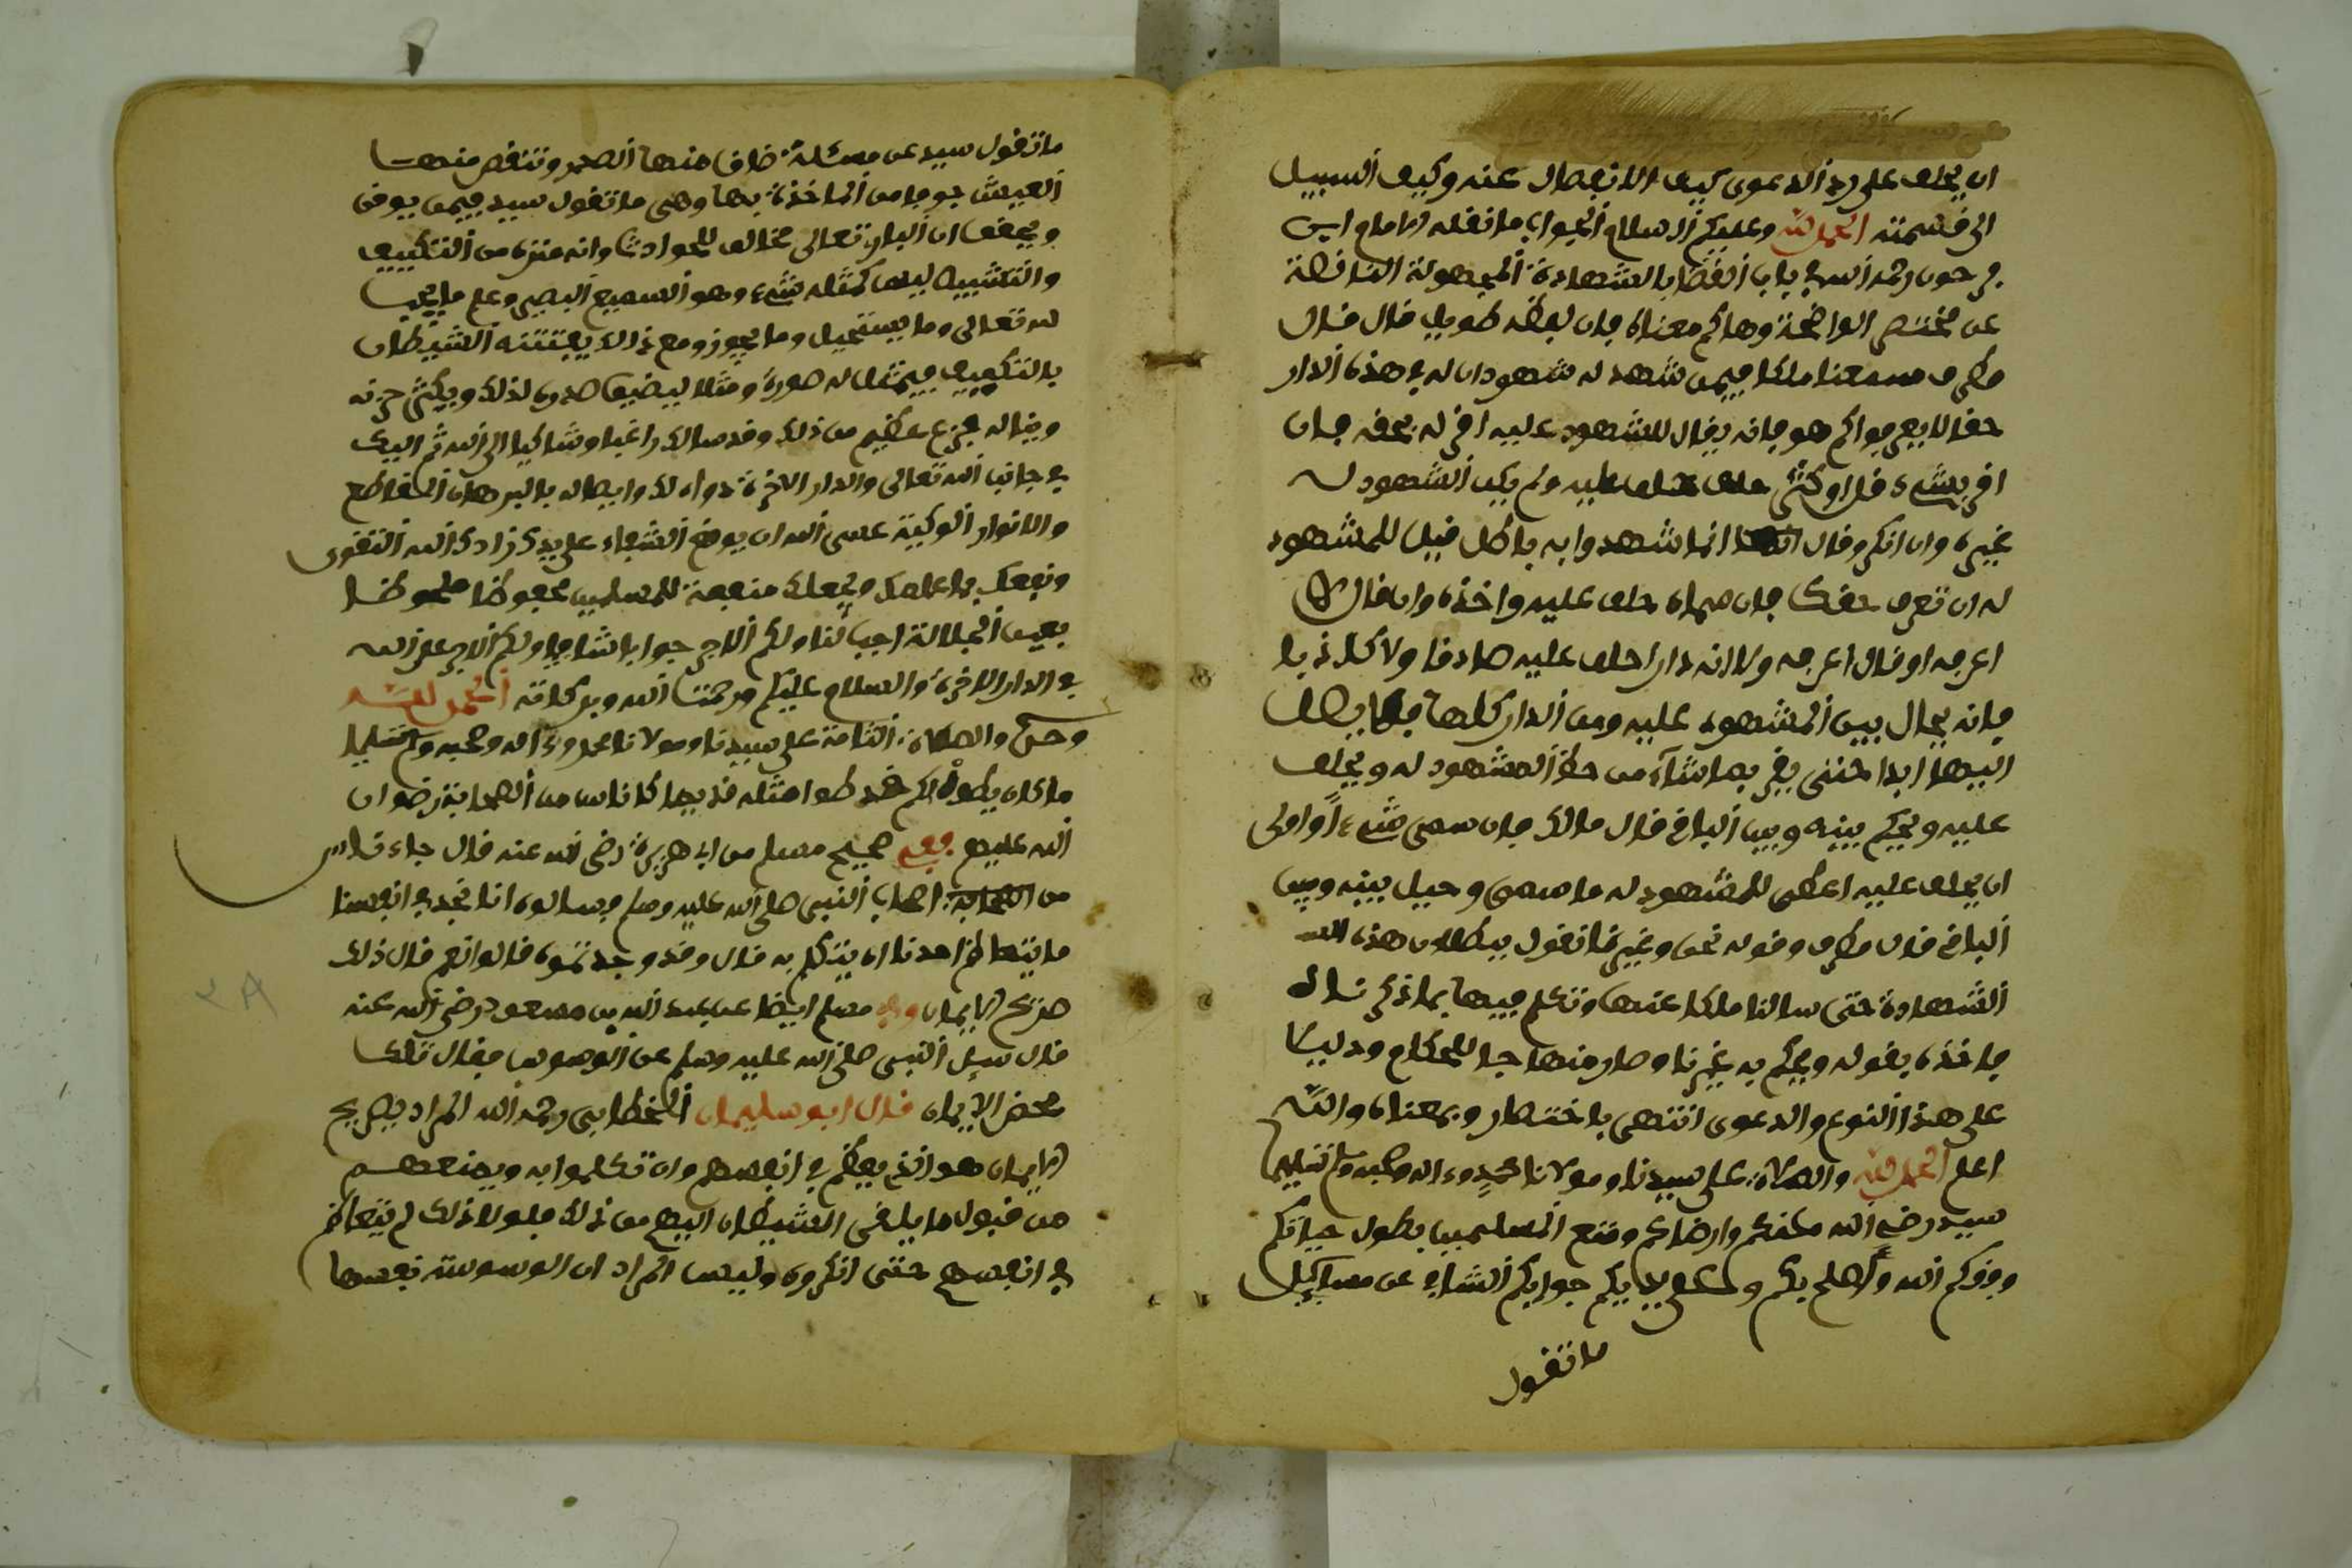 ان يحلف على رد الدعوى كيف الانفصال عنه وكيف السبيل
الى قسمته الحمد لله وعليكم السلام الجواب ما نقله الامام ابن
فرحون رحمه الله في باب القضا بالشهادة المجهولة الناقصة
عن مختصر الواضحة وهاكم معناه فان لفظه طويل قال قال
مطرف سمعنا ملكا فيمن شهد له شهود ان له في هذه الدار
حقا لا يعرفوا كم هو فانه يقال للمشهود عليه اقر له بحقه فان
اقر بشيء قل او كثر حلف عليه ولم يكن للشهود له
غيره وان انكر وقال انما شهدوا به باطل قيل للمشهود
له ان تعرف حقك فان سماه حلف عليه واخذه وان قال لا
اعرفه او قال اعرفه ولا انه دارا حلف عليه صادقا ولا كاذبا
فانه يحال بين المشهود عليه ومن الدار كلها فلا يصل
اليها ابدا حتى يقر بما شاء من حظ المشهود له ويحلف
عليه ويحكم بينه وبين الباقي قال مالك فان سمى شيءا وابى
ان يحلف عليه اعطى للمشهود له ما سمى وحيل بينه وبين
الباقي قال مطرف وقوله نحن وغيرنا نقول ببطلان هذه
الشهادة حتى سالنا ملكا عنها وتكلم فيها بما ذكرنا لك
فاخذه بقوله ويحكم به غيرنا وصار منهاجا للحكام ودليلا
على هذا النوع والدعوى انتهى باختصار وبمعناه والله
اعلم الحمد لله والصلاة على سيدنا ومولانا محمد وءاله وصحبه وسلم تسليما
سيد رضي الله عنكم وارضاكم ومتع المسلمين بطول حياتكم
وفقكم الله واصلح بكم وعلى يديكم جوابكم الشافي عن مسايل
ما تقول
ما تقول سيد عن مسئلة ضاق منها الصدر وتنغص منها
العيش خوفا من المواخذة بها وهى ما تقول سيد فيمن يوقن
ويحقق ان البار تعالى مخالف للحوادث وانه منزه من التكييف
والتشبيه ليس كمثله شيء وهو السميع البصير وعلم ما يجب
لله تعالى وما يستحيل وما يجوز ومع ذالك يفتنه الشيطان
بالتكييف فيمثل له صورة ومثلا ليضيق صدره لذلك ويكثر حزنه
ويناله فزع عظيم من ذلك وقد سالك راغبا وشاكيا الى الله ثم اليك
في جانب الله تعالى والدار الاخرة دواء لك وايصاله بالبرهان القاطع
والانوار الوكية عسى الله ان يوقع الشفاء على يدك زادك الله التقوى
ونفعك بما علمك وجعلك منفعة للمسلمين محفوظا ملحوظا
بعين الجلالة اجب لنا ولكم الاجر جوابا شافيا ولكم الاجر على الله
في الدار الاخرة والسلام عليكم ورحمت الله وبركاته الحمد لله
وحده والصلاة التامة على سيدنا ومولانا محمد وءاله وصحبه وسلم تسليما
ما كان يطوف لكم خطوا مثله قديما كاناس من الصحابة رضوان
الله عليهم ففي صحيح مسلم من ابي هريرة رضي الله عنه قال جاء ناس
من اصحاب النبي صلى الله عليه وسلم فسالوه انا نجد في انفسنا
ما يتعاظم احدنا ان يتكلم به قال وقد وجدتموه قالوا نعم قال ذلك
صريح الايمان وفي مسلم ايضا عن عبد الله بن مسعود رضي الله عنه
قال سيل النبي صلى الله عليه وسلم عن الوسوسة فقال تلك
محض الايمان قال ابو سليمان الخطابي رحمه الله المراد بصريح
الايمان هو الذي يعظم في انفسهم وان تكلموا به ويمنعهم
من قبول ما يلقى الشيطان اليهم من ذلك فلولا ذلك لم يتعاظم
في انفسهم حتى انكروه وليس المراد ان الوسوسة نفسها